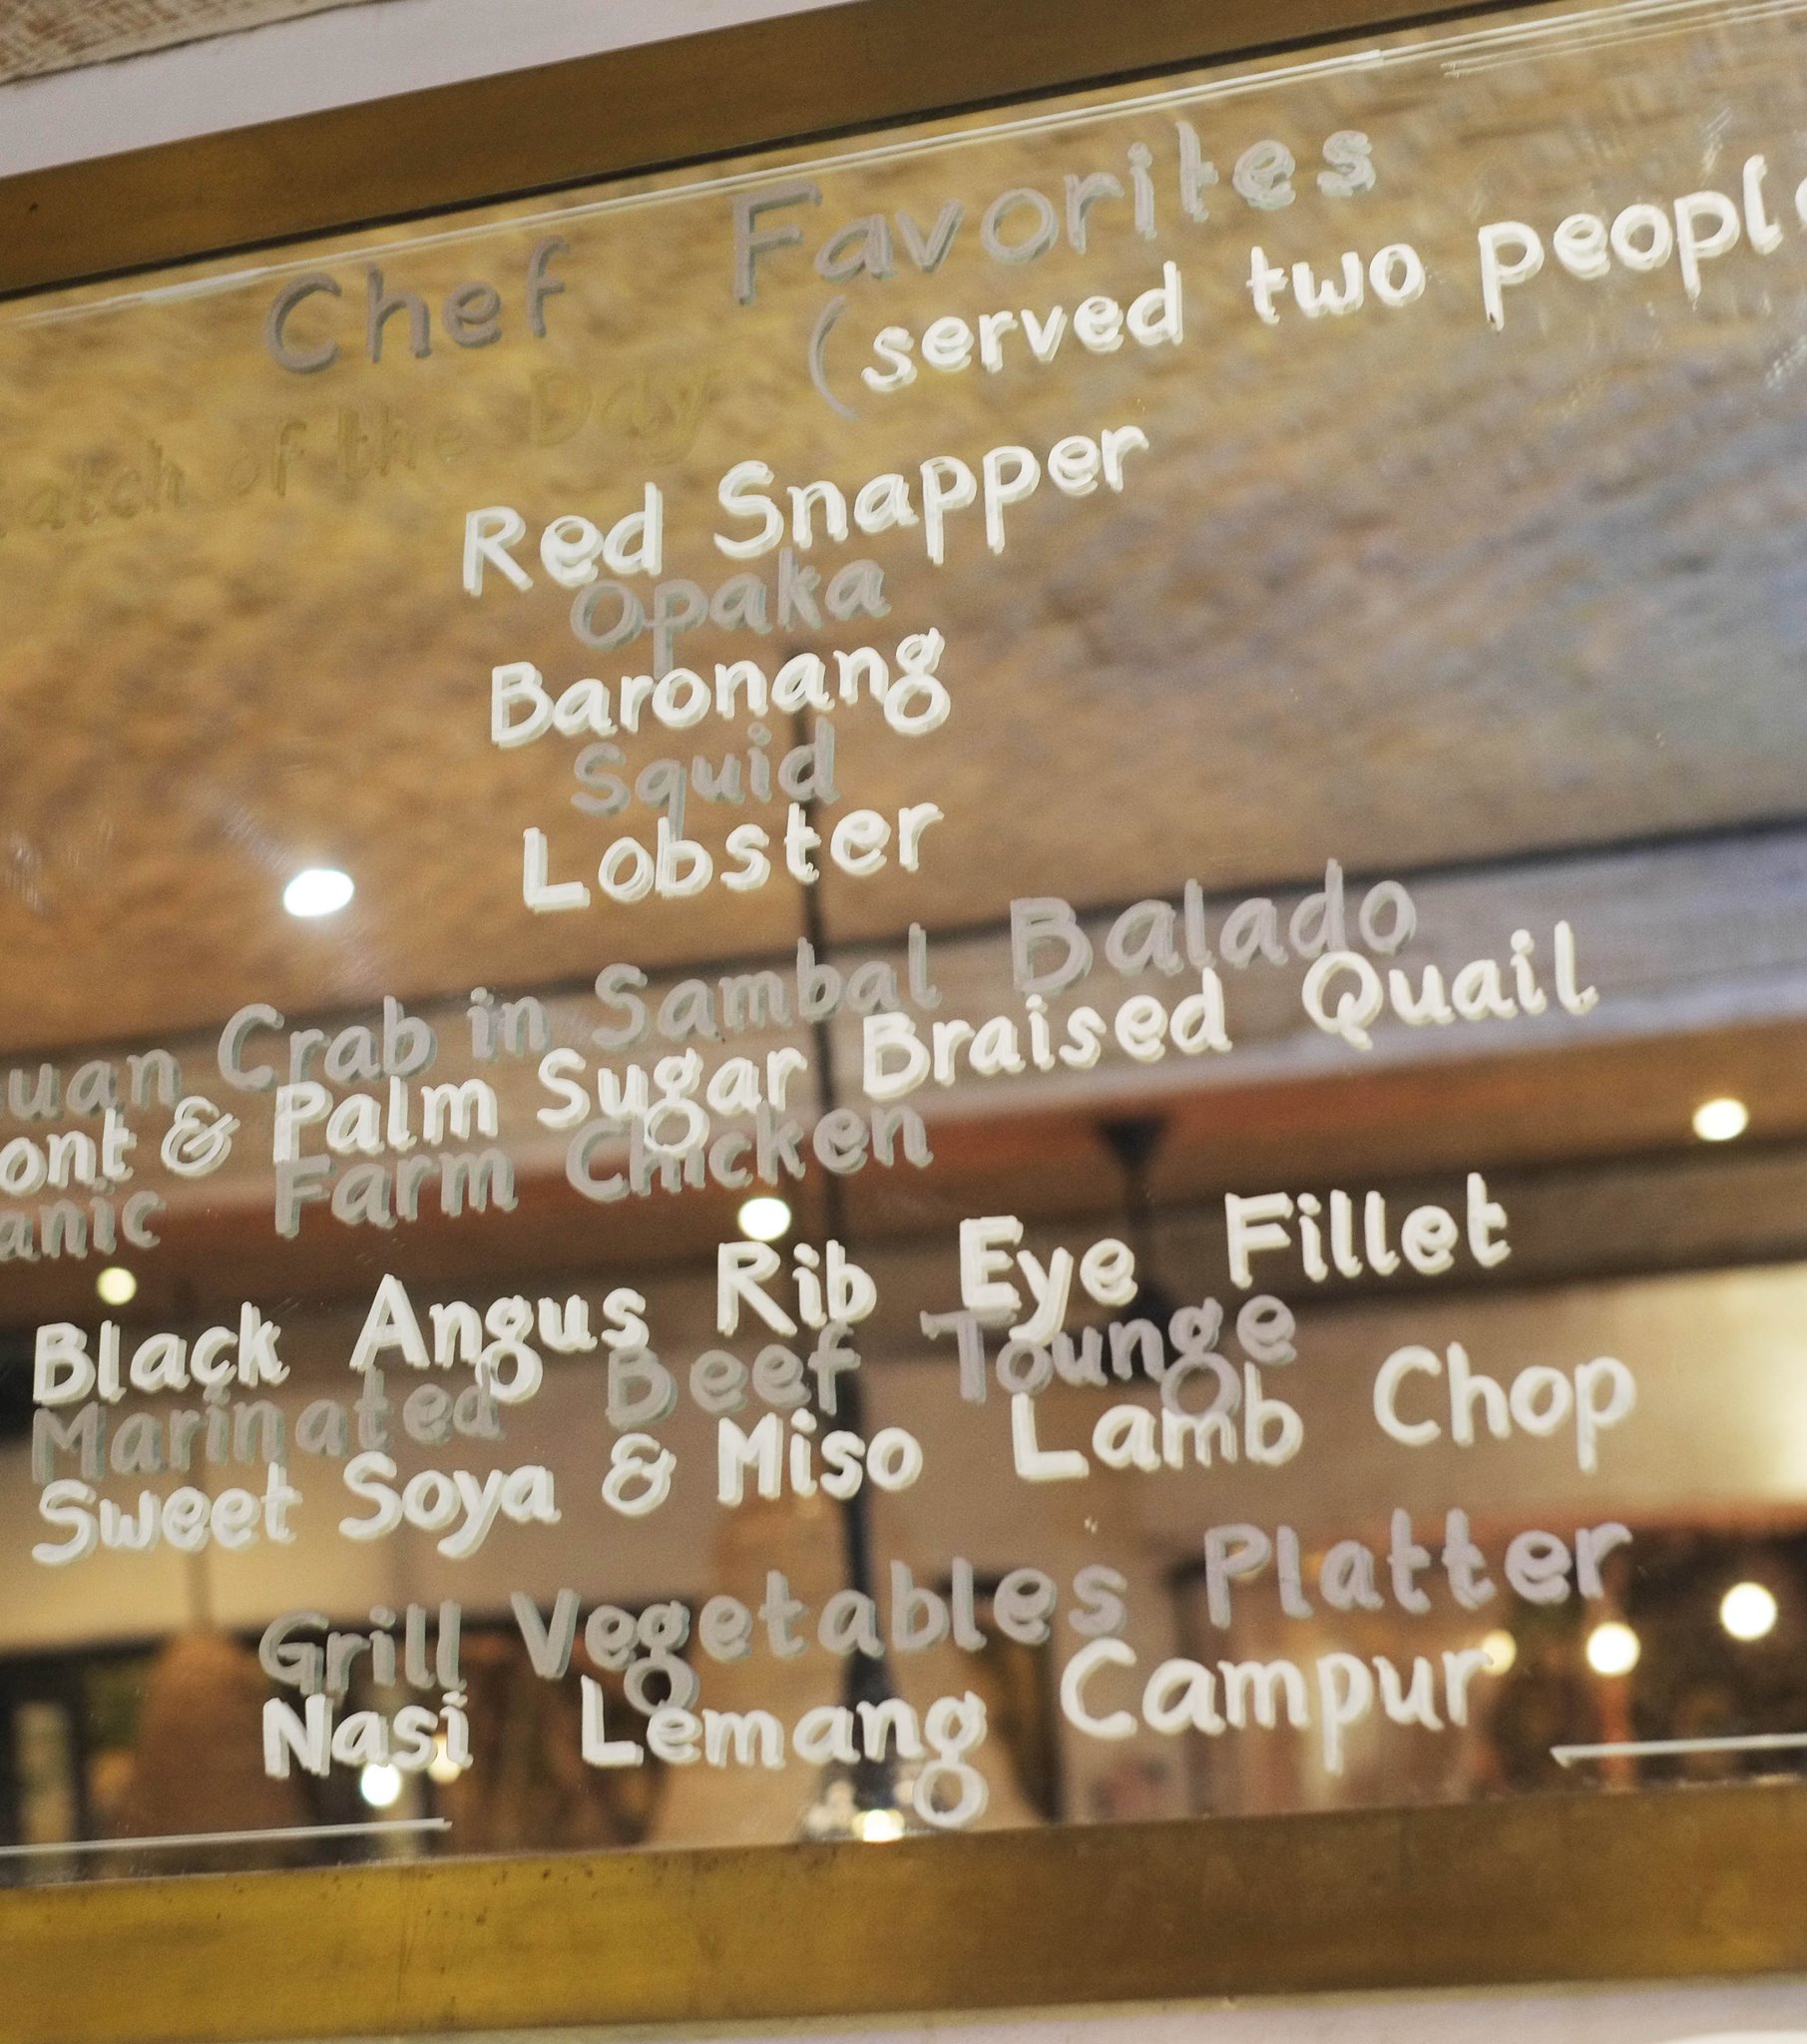 Chef Favorites
(served two people
Catch of the Day
Red Snapper
Opaka
Baronang
Squid
Lobster
uan Crab in Sambal Balado
ont & Palm Sugar Braised Quail
anic Farm Chicken
Black Angus Rib Eye Fillet
Marinated Beef Tounge
Sweet Soya & Miso Lamb Chop
Grill Vegetables Platter
Nasi Lemang Campur